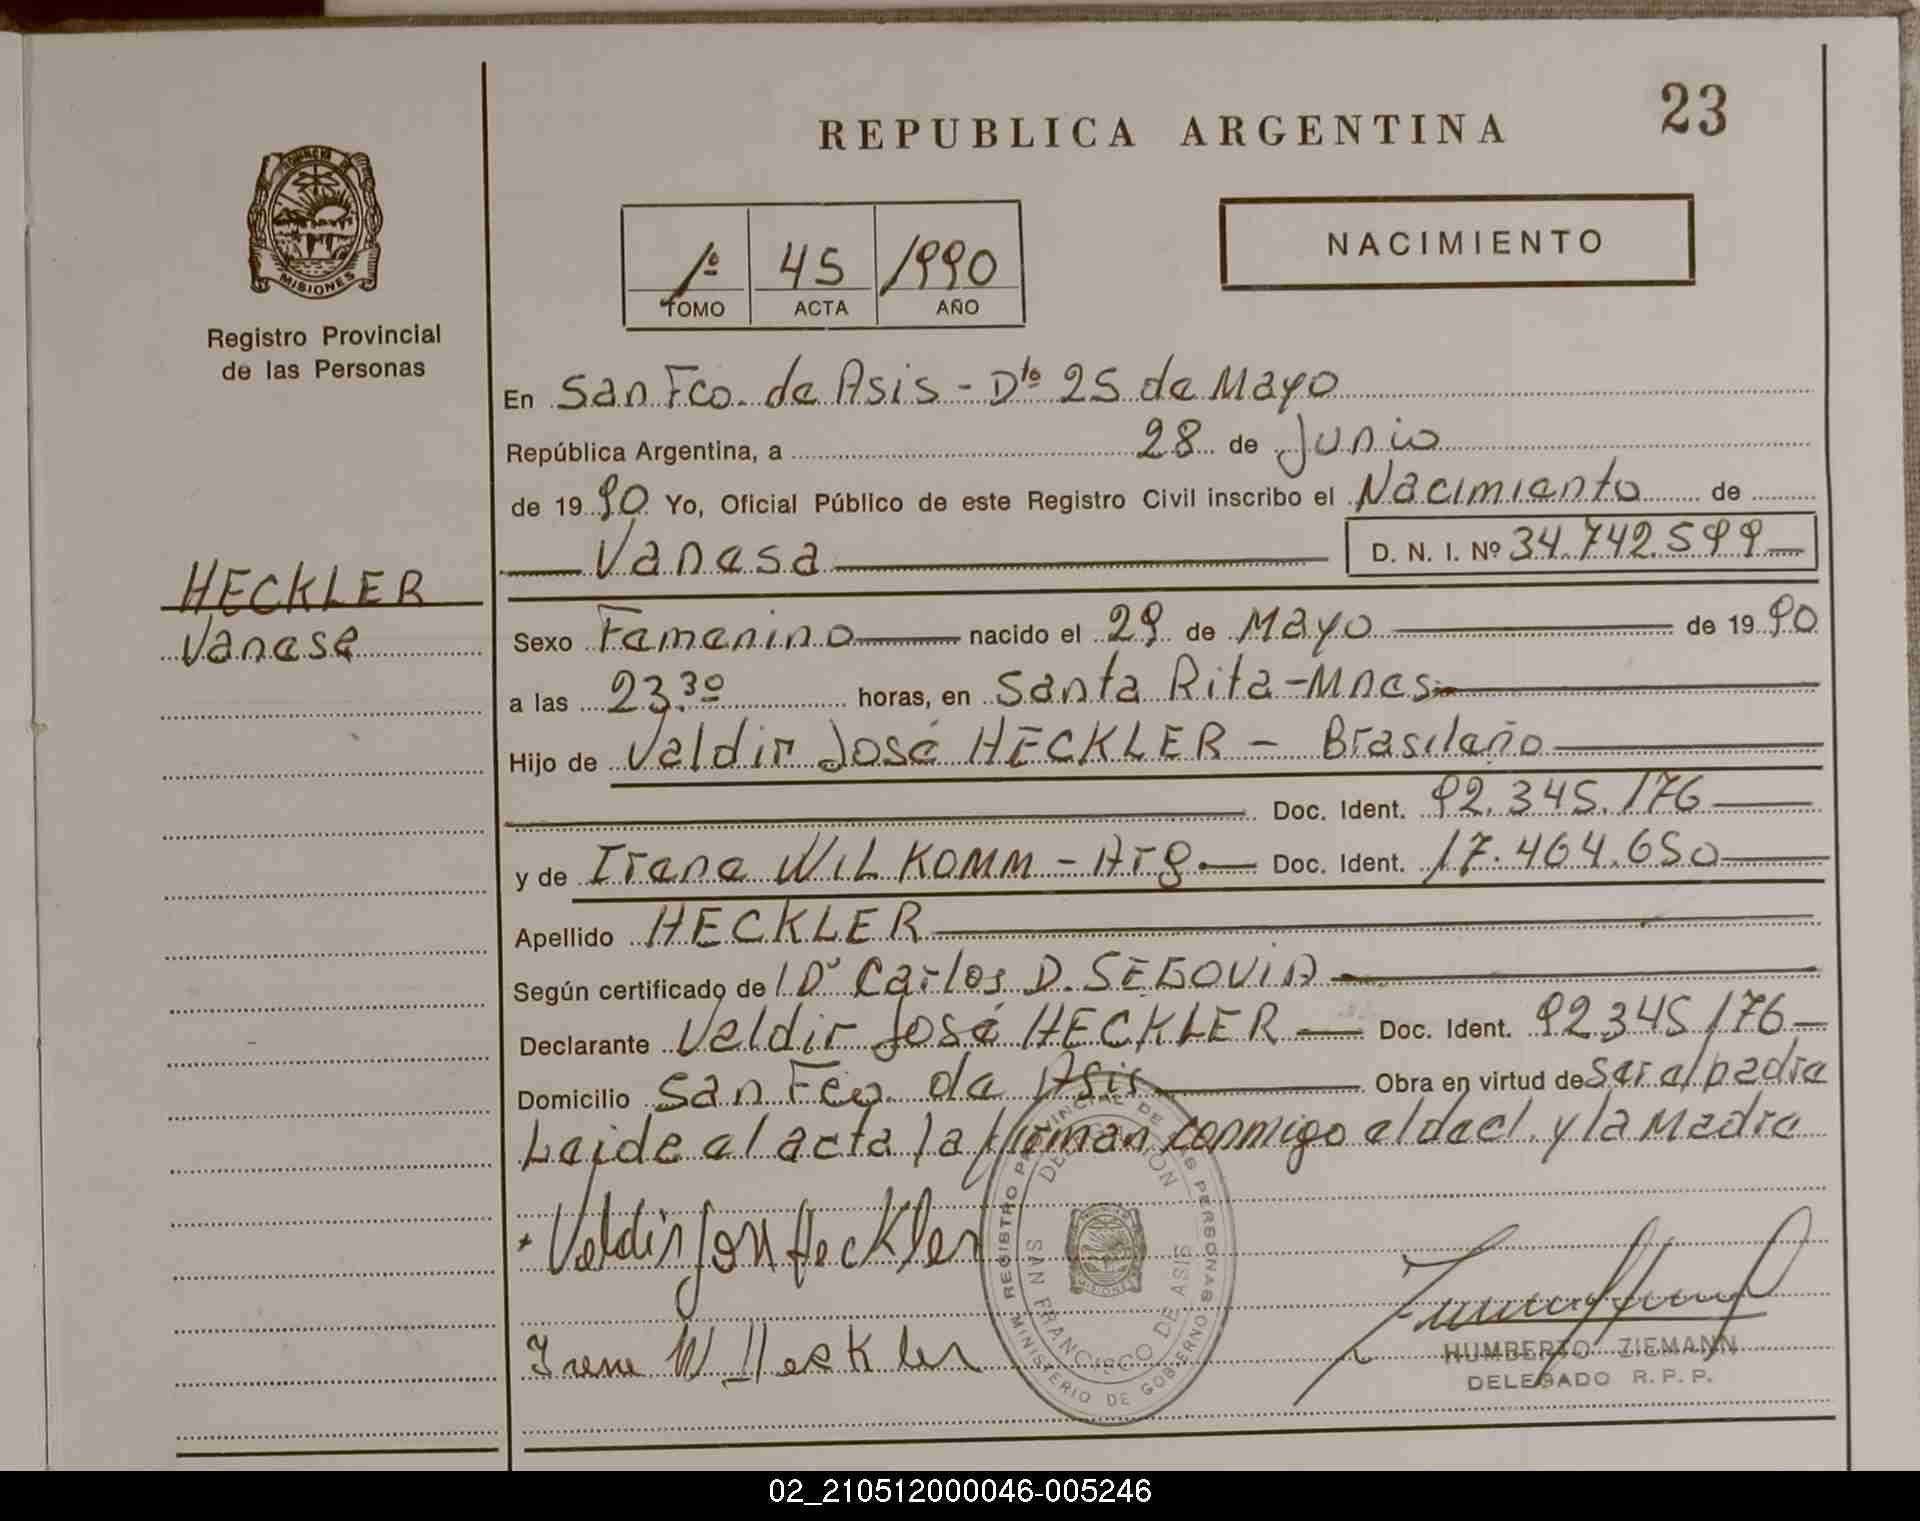 23
REPUBLICA ARGENTINA
PROVINCIA DE
MISIONES
Registro Provincial
de las Personas
NACIMIENTO
1º 45 1990
TOMO ACTA AÑO
En San Fco. de Asis - Dto 25 de Mayo
República Argentina, a 28 de Junio
de 1990 Yo, Oficial Público de este Registro Civil inscribo el Nacimiento de
Vanesa D. N. I. Nº 34.742.599
HECKLER
Vanesa
Sexo Femenino nacido el 29 de Mayo de 1990
a las 23.30 horas, en Santa Rita - Mnes
Hijo de Valdir José HECKLER - Brasileño
Doc. Ident. 92.345.176
y de Irene WILKOMM - Arg. Doc. Ident. 17.464.650
Apellido HECKLER
Según certificado de Dr Carlos D. SEGOVIA
Declarante Valdir José HECKLER Doc. Ident. 92345176
Domicilio San Fco. de Asis Obra en virtud de ser el padre
Leide el acta la firman conmigo el decl. y la Madre
Valdir José Heckler
Irene W Heckler
REGISTRO PROVINCIAL DE LAS PERSONAS
DELEGACION
SAN FRANCISCO DE ASIS
MISIONES
MINISTERIO DE GOBIERNO
HUMBERTO ZIEMANN
DELEGADO R. P. P.
02_210512000046-005246